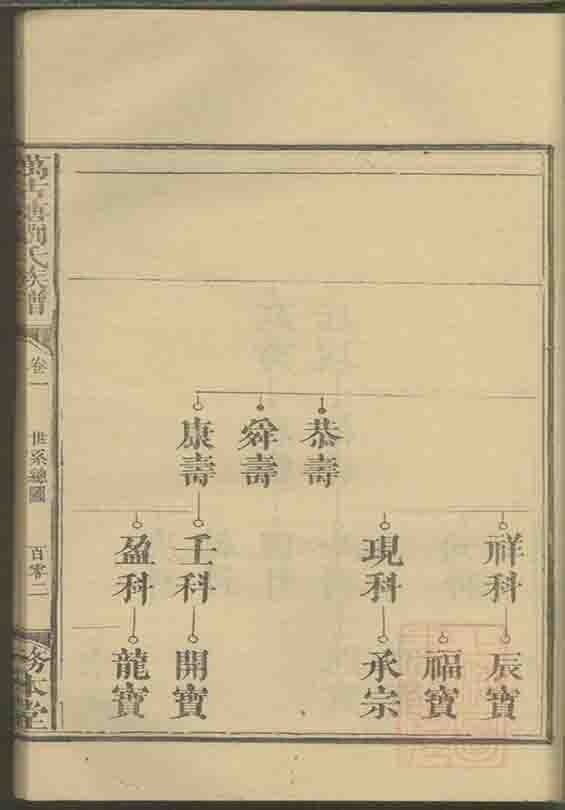 恭壽
舜壽
康壽
祥科
現科
壬科
盈科
辰寶
福寶
承宗
開寶
龍寶
劉氏族譜
卷一
世系總圖
百零二
務本堂